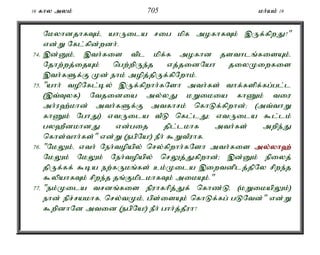 16 கால அலம் 705 மர்யம் 19
மேலானதாகவும், யாருடைய சபை மிக அழகாகவும் இருக்கிறது?"
என்று கேட்கின்றனர்.
74. இன்னும், இவர்களை விட மிக்க அழகான தளவாடங்களையும்,
தோற்றத்தையும் பெற்றிருந்த எத்தனையோ தலைமுறைகளை
இவர்களுக்கு முன் நாம் அழித்திருக்கிறோம்.
75. "யார் வழிகேட்டில் இருக்கிறார்களோ அவர்கள் வாக்களிக்கப்பட்ட
(இவ்வுலக) வேதனையை அல்லது மறுமையை காணும் வரை
அர்ரஹ்மான் அவர்களுக்கு அவகாசம் கொடுக்கிறான்; (அவ்வாறு
காணும் போது) எவருடைய வீடு கெட்டது, எவருடைய கூட்டம்
பலஹீனமானது என்பதை திட்டமாக அவர்கள் அறிந்து
கொள்வார்கள்" என்று (நபியே) நீர் கூறுவீராக.
76. "மேலும், எவர் நேர்வழியில் செல்கிறார்களோ அவர்களை அல்லாஹ்
மேலும் மேலும் நேர்வழியில் செலுத்துகிறான்; இன்னும் நிலைத்
திருக்கக் கூடிய நற்கருமங்கள் உம்முடைய இறைவனிடத்திலே சிறந்த
கூலியாகவும் சிறந்த தங்குமிடமாகவும் அமையும்."
77. "நம்முடைய வசனங்களை நிராகரித்துக் கொண்டு, (மறுமையிலும்)
நான் நிச்சயமாக, செல்வமும், பிள்ளையும் கொடுக்கப் படுவேன்" என்று
கூறினானே அவனை (நபியே) நீர் பார்த்தீரா?